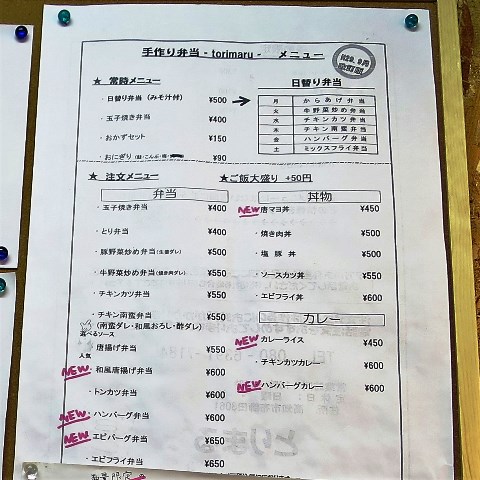 手作り弁当 - torimaru - メニュー
H29.9月
改訂版
★ 常時メニュー
・日替り弁当 (みそ汁付) ¥500
・玉子焼き弁当 ¥400
・おかずセット ¥150
・おにぎり ¥90
日替り弁当
月 からあげ弁当
火 牛野菜炒め弁当
水 チキンカツ弁当
木 チキン南蛮弁当
金 ハンバーグ弁当
土 ミックスフライ弁当
★ 注文メニュー
★ご飯大盛り +50円
弁当
・玉子焼き弁当 ¥400
・とり弁当 ¥400
・豚野菜炒め弁当(生姜ダレ) ¥500
・牛野菜炒め弁当(焼き肉ダレ) ¥550
・チキンカツ弁当 ¥550
・チキン南蛮弁当 ¥550
(南蛮ダレ・和風おろし・酢ダレ)
選べるソース
人気
・唐揚げ弁当 ¥550
NEW ・和風唐揚げ弁当 ¥600
・トンカツ弁当 ¥600
NEW ・ハンバーグ弁当 ¥600
NEW ・エビバーグ弁当 ¥650
・エビフライ弁当 ¥650
丼物
NEW ・唐マヨ丼 ¥450
・焼き肉丼 ¥500
・塩豚丼 ¥500
・ソースカツ丼 ¥550
・エビフライ丼 ¥600
カレー
NEW ・カレーライス ¥450
・チキンカツカレー ¥600
NEW ・ハンバーグカレー ¥600